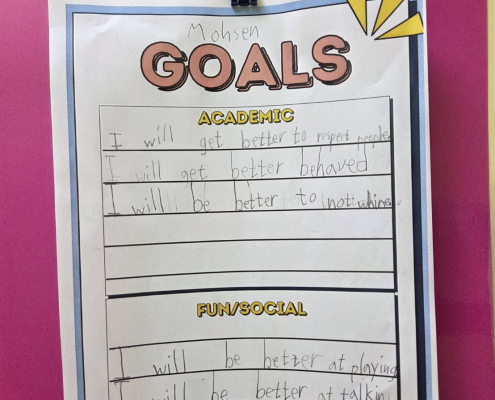 Mohsen
GOALS
ACADEMIC
I will get better to respect people
I will get better behaved
I will be better to not whine.
FUN/SOCIAL
I will be better at playing
I will be better at talkin